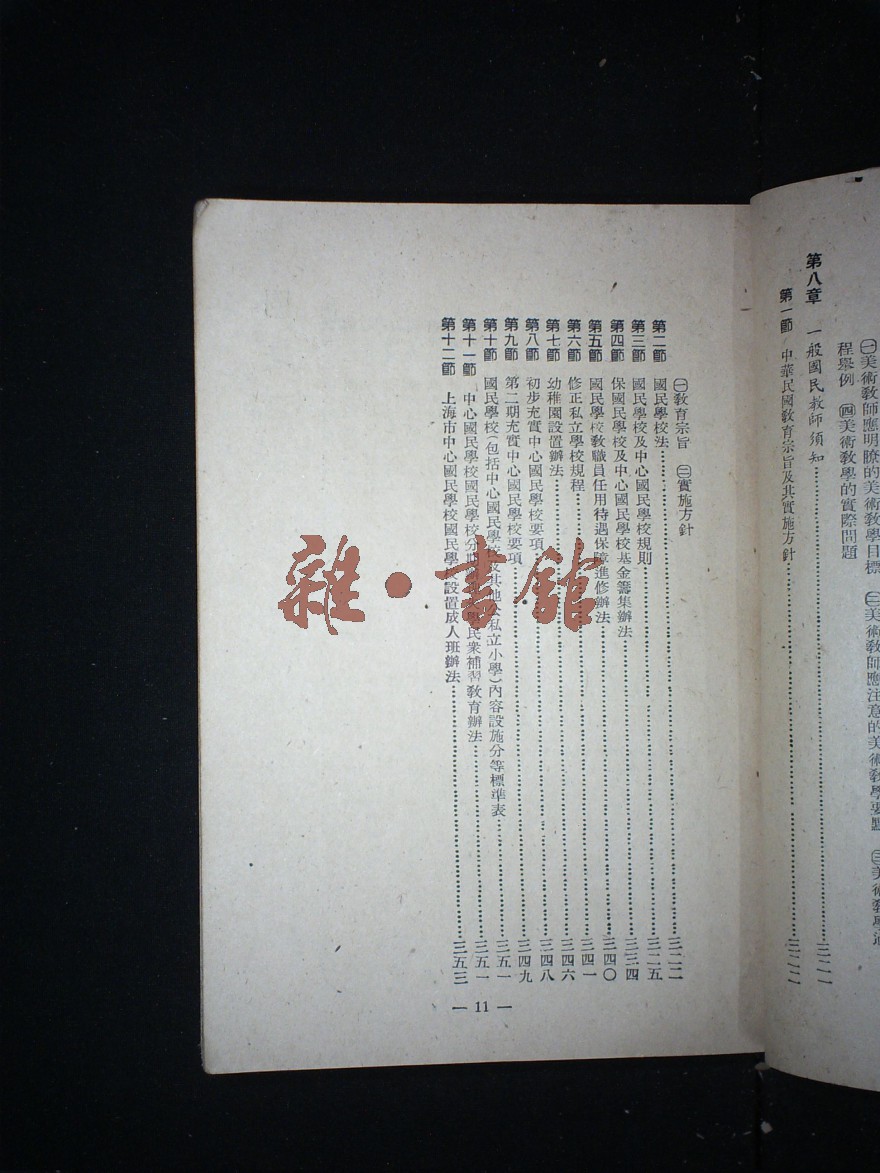 ㊀美術敎師應明瞭的美術敎學目標　㊁美術敎師應注意的美術敎學要點　㊂美術敎學
程舉例　㊃美術敎學的實際問題
第八章　一般國民敎師須知…………三二一
第一節　中華民國敎育宗旨及其實施方針…………三二二
㊀敎育宗旨　㊁實施方針
第二節　國民學校法…………三二二
第三節　國民學校及中心國民學校規則…………三二五
第四節　保國民學校及中心國民學校基金籌集辦法…………三三四
第五節　國民學校敎職員任用待遇保障進修辦法…………三四〇
第六節　修正私立學校規程…………三四一
第七節　幼稚園設置辦法…………三四六
第八節　初步充實中心國民學校要項…………三四八
第九節　第二期充實中心國民學校要項…………三四九
第十節　國民學校(包括中心國民學校及其他公私立小學)內容設施分等標準表…………三五一
第十一節　中心國民學校國民學校分期辦民衆補習敎育辦法…………三五一
第十二節　上海市中心國民學校國民學校設置成人班辦法…………三五三
— 11 —
雜·書館